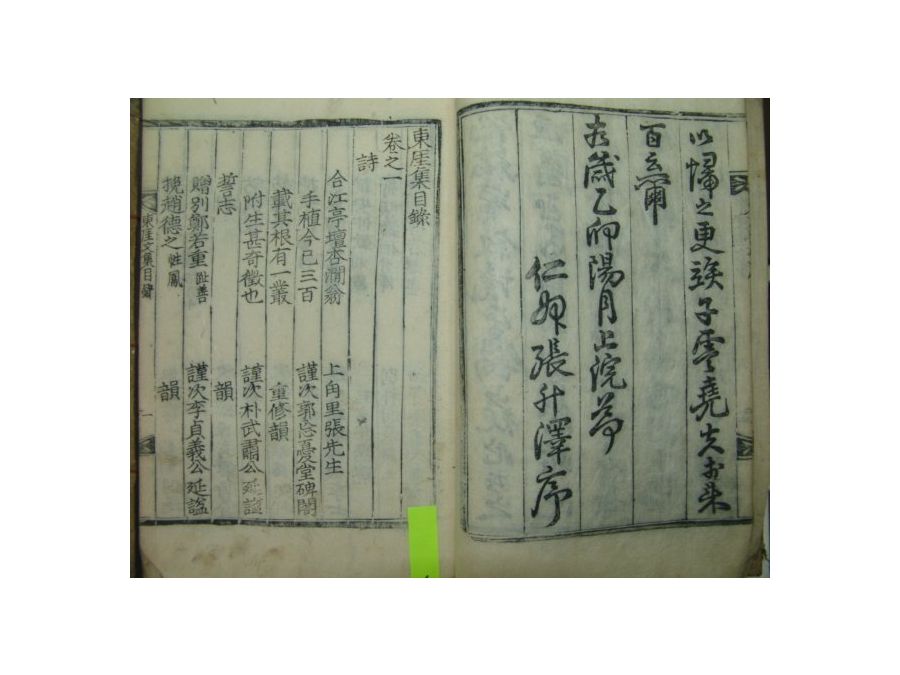 以歸之更竢子雲堯夫於來
百云爾
歲乙卯陽月上浣
仁州張升澤序
東厓集目錄
卷之一
詩
合江亭壇杏澗翁
手植今已三百
載其根有一叢
附生甚奇徵也
誓志
贈別鄭若重 趾善
挽趙德之 性鳳
上角里張先生
謹次郭忘憂堂碑閣
重修韻
謹次朴武肅公延諡
韻
謹次李貞義公延諡
韻
東厓文集目錄
一